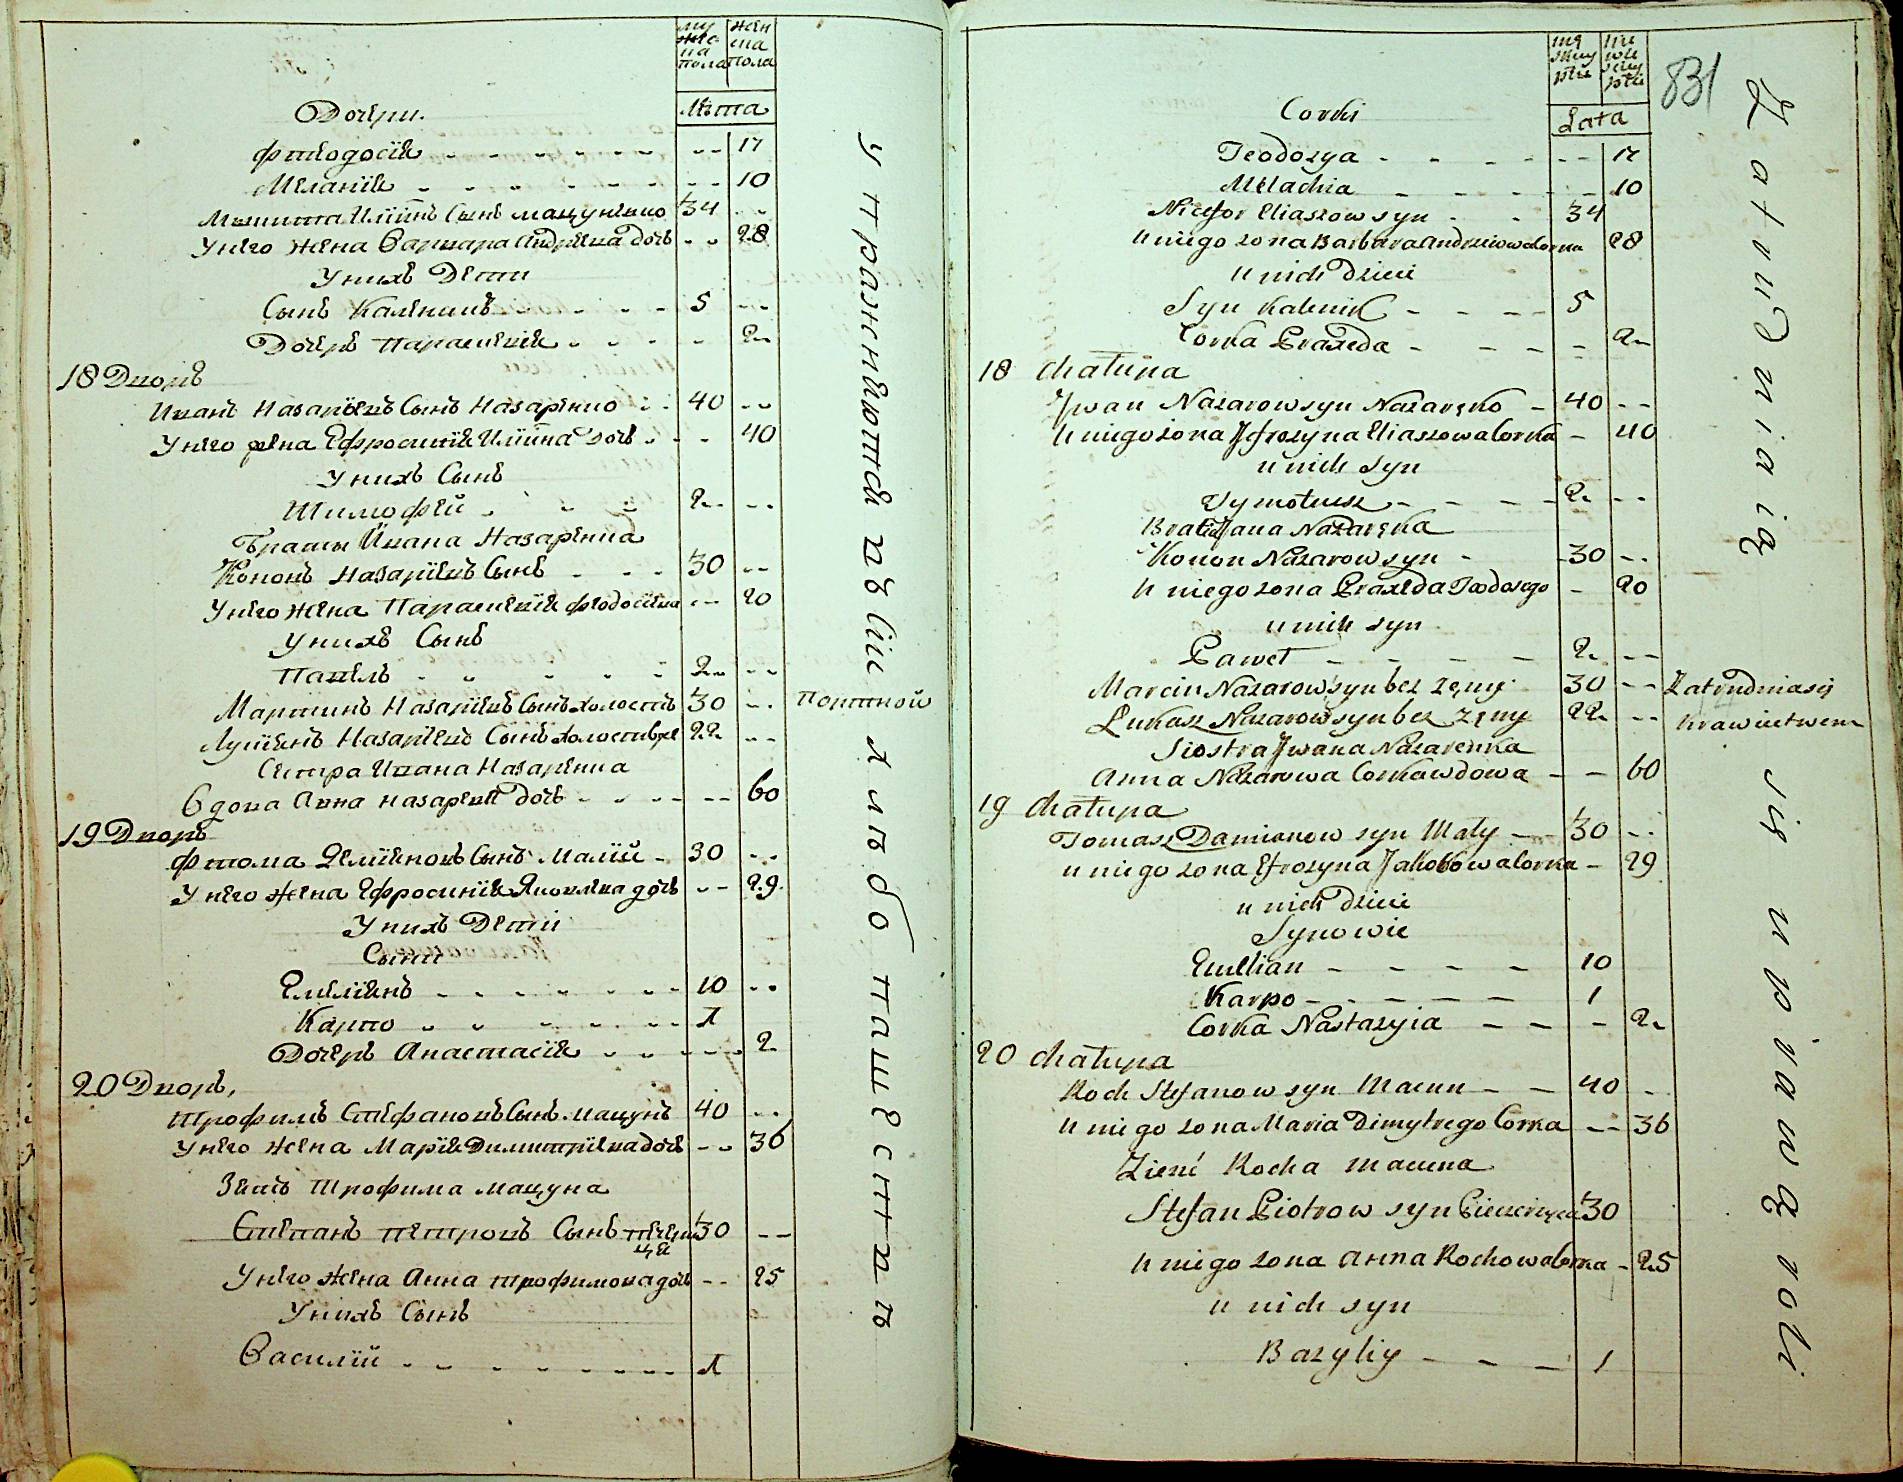 мужеска пола
женска пола
Лѣта
Дочери.
Фтеодосія 17
Меланія 10
Микита Иліинъ Сынъ мацуненко 34
У него жена Варвара Андреева дочь 28
У нихъ Дети
Сынъ Каленикъ 5
Дочерь Параскевія 2
18 Дворъ
Иванъ Назаріевъ Сынъ Назаренко 40
У него жена Ефросинія Иліина дочь 40
У нихъ Сынъ
Тимофей 2
Браты Ивана Назаренка
Кононъ Назаріевъ Сынъ 30
У него жена Параскевія Феодосіева 20
У нихъ Сынъ
Павелъ 2
Мартинъ Назаріевъ Сынъ холостъ 30 Портной
Лукіянъ Назаріевъ Сынъ холостъ же 22
Сестра Ивана Назаренка
Вдова Анна Назарева дочь 60
19 Дворъ
Фтома Деміяновъ Сынъ Малій 30
У него жена Ефросинія Яковлева дочь 29
У нихъ Деті
Сыни
Емеліянъ 10
Карпо 1
Дочерь Анастасія 2
20 Дворъ,
Трофимъ Стефановъ Сынъ мацунъ 40
У него жена Марія Димитріева дочь 36
Зять Трофима мацуна
Степанъ Петровъ Сынъ 30
У него жена Анна трофимова дочь 25
У нихъ Сынъ
Василій 1
Упражняются въ сіи хлѣбопашествѣ
męskiey płci
niewieściey płci
831
Lata
Corki
Teodozya 17
Melachia 10
Nicefor Eliaszow syn 34
u niego zona Barbara Andrziowa Corka 28
u nich Dzieci
Syn Kalenik 5
Corka Praxeda 2
18 Chałupa
Jwan Nazarow syn Nazaręko 40
u niego zona Jefrozyna Eliaszowa Corka 40
u nich syn
Tymoteusz 2
Bratia Jwana Nazaręka
Konon Nazarow syn 30
u niego zona Praxeda Teodozego 20
u nich syn
Paweł 2
Marcin Nazarow syn bez Zęny 30 Zatrudnia się
Łukasz Nazarow syn bez zęny 22 Krawiectwem
Siostra Jwana Nazarenka
Anna Nazarowa Corka wdowa 60
19 Chałupa
Tomasz Damianow syn Mały 30
u niego zona Efrozyna Jakobowa Corka 29
u nich Dzieci
Synowie
Emelian 10
Karpo 1
Corka Nastazyia 2
20 Chałupa
Roch Stefanow syn Macun 40
u niego zona Maria Dimytrego Corka 36
Zienć Rocha Macuna
Stefan Piotrow syn 30
u niego zona Anna Rochowa Corka 25
u nich syn
Bazyliy 1
Zatrudniaią się uprawą roli